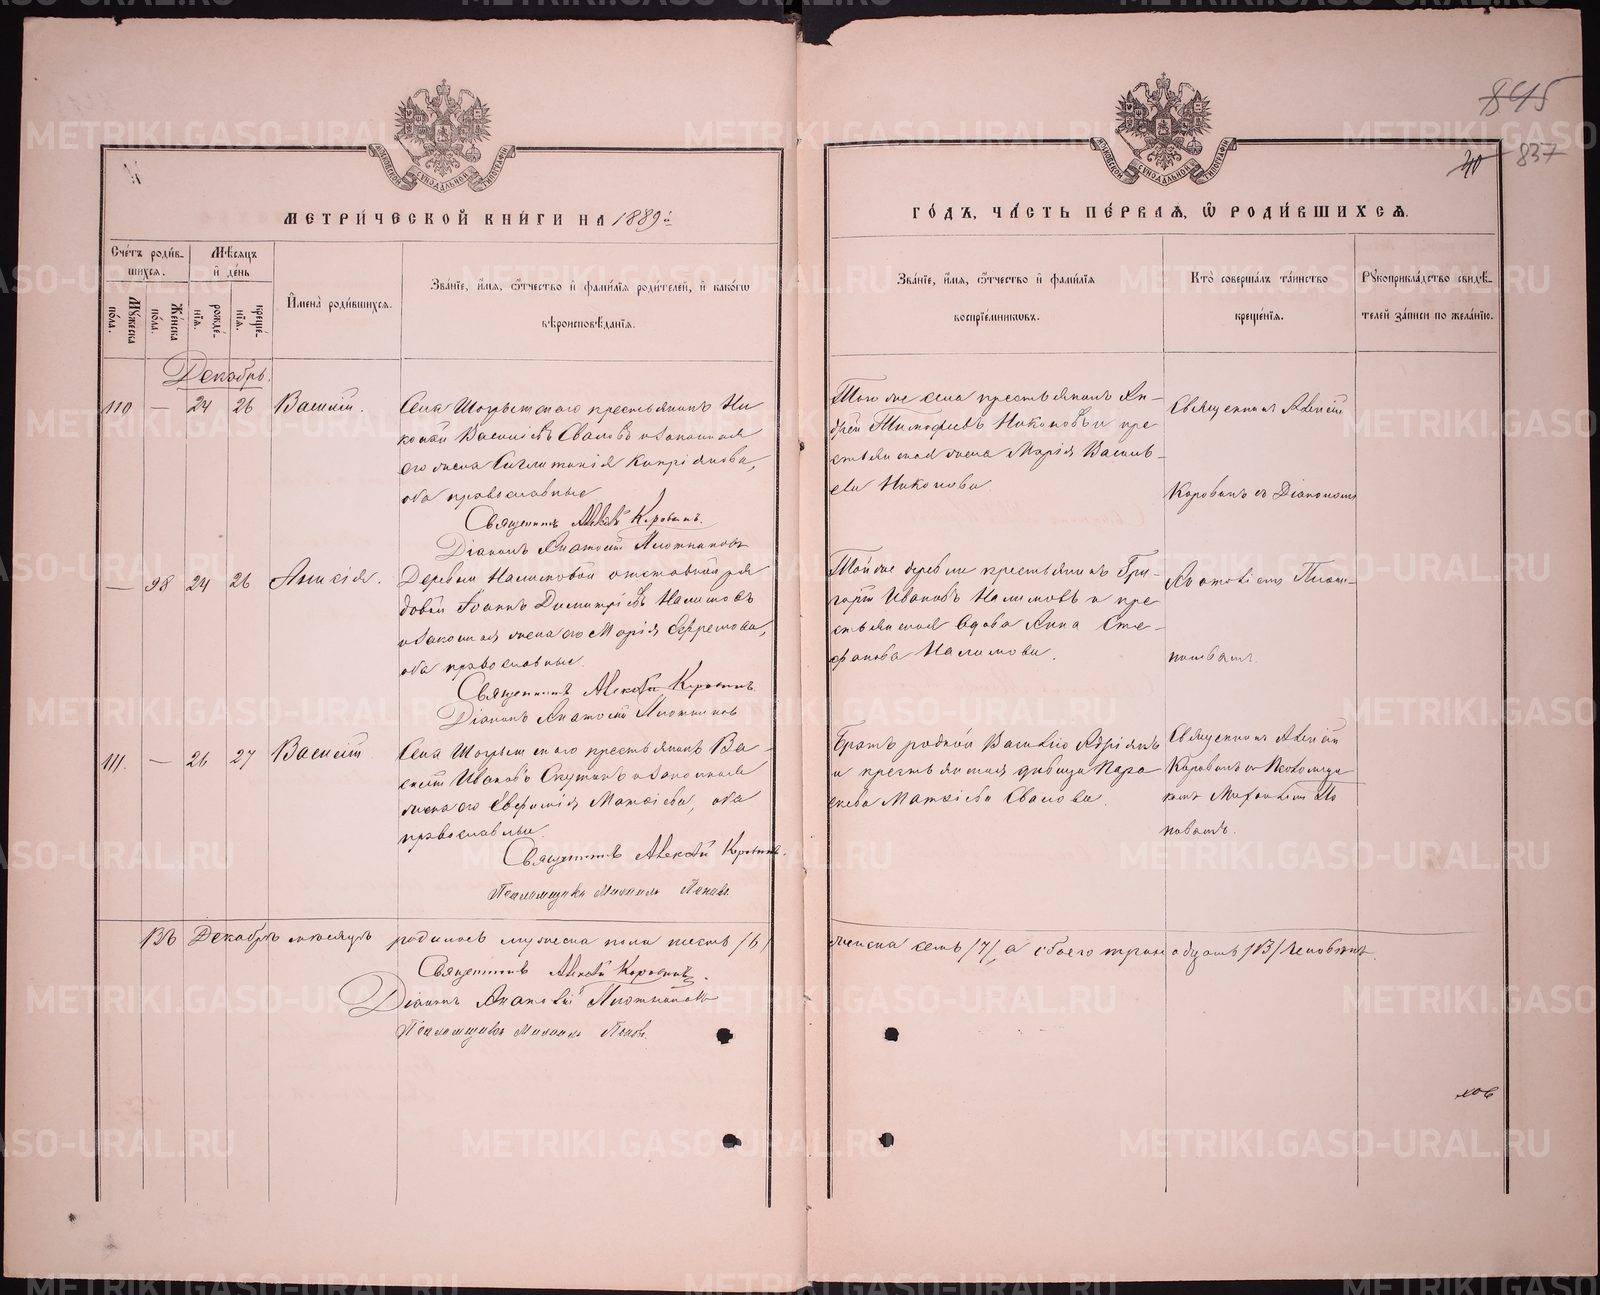 845
40 837
МЕТРИ́ЧЕСКОЙ КНИ́ГИ НА 1889й
ГО́ДЪ, ЧА́СТЬ ПЕ́РВАЯ, Ѽ РОДИ́ВШИХСЯ.
Сче́тъ роди́в-
шихся.
Мѣ́сяцъ
и҆ де́нь
Му́жеска
по́ла.
Же́нска
по́ла.
рожде́-
нія.
креще́-
нія.
И҆мена̀ роди́вшихся.
Зва́ніе, и҆́мя, ѻ҆́тчество и҆ фами́лія роди́телей, и҆ како́гѡ
вѣроисповѣ́данія.
Зва́ніе, и҆́мя, ѻ҆́тчество и҆ фами́лія
воспріе́мниковъ.
Кто̀ соверша́лъ та́инство
креще́нія.
Рукоприкла́дство свидѣ́-
телей за́писи по жела́нію.
Декабрь.
110 — 24 26 Василій.
Села Шогрышскаго крестьянинъ Ни
колай Василіевъ Сваловъ и законная
его жена Сигклитикія Кипріянова,
оба православные
Священникъ Алексѣй Коровинъ.
Діаконъ Анатолій Плотниковъ
Того же села крестьянинъ Ан-
дрей Тимофеевъ Никоновъ и кре
стьянская жена Марія Василь-
ева Никонова
Священникъ Алексій
Коровинъ съ Діакономъ
— 98 24 26 Анисія.
Деревни Налимовой отставной ря
довой Іоаннъ Димитріевъ Налимовъ
и законная жена его Марія Ефремова,
оба православные.
Священникъ Алексѣй Коровинъ.
Діаконъ Анатолій Плотниковъ
Той же деревни крестьянинъ Гри-
горій Ивановъ Налимовъ и кре
стьянская вдова Анна Сте-
фанова Налимова.
Анатоліемъ Плот-
никовымъ.
111. — 26 27 Василій
Села Шогрышскаго крестьянинъ Ва-
силій Ивановъ Скутинъ и законная
жена его Евфимія Матѳіева, оба
православные.
Священникъ Алексѣй Коровинъ.
Псаломщикъ Михаилъ Поповъ
Братъ родной Василію Адріанъ
и крестьянская дѣвица Пара
скева Матѳіева Свалова.
Священникъ Алексій
Коровинъ съ Псаломщи
комъ Михаиломъ По
повымъ.
Въ Декабрѣ мѣсяцѣ родилось мужеска пола шесть /6/
женска семь /7/, а обоего тринадцать /13/ человѣкъ.
Священникъ Алексѣй Коровинъ.
Діаконъ Анатолій Плотниковъ
Псаломщикъ Михаилъ Поповъ.